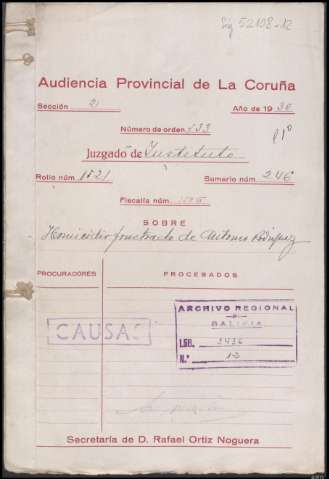 Sig 52108-12
Audiencia Provincial de La Coruña
Sección 2ª Año de 1930
Número de orden 133
Juzgado de Instituto
Rollo núm. 1521 Sumario núm. 246
Fiscalía núm.
SOBRE
Homicidio frustrado de Antonio Rodríguez
PROCURADORES PROCESADOS
CAUSAS
ARCHIVO REGIONAL
DE
GALICIA
LEG. 3436
N.º 12
Secretaría de D. Rafael Ortiz Noguera